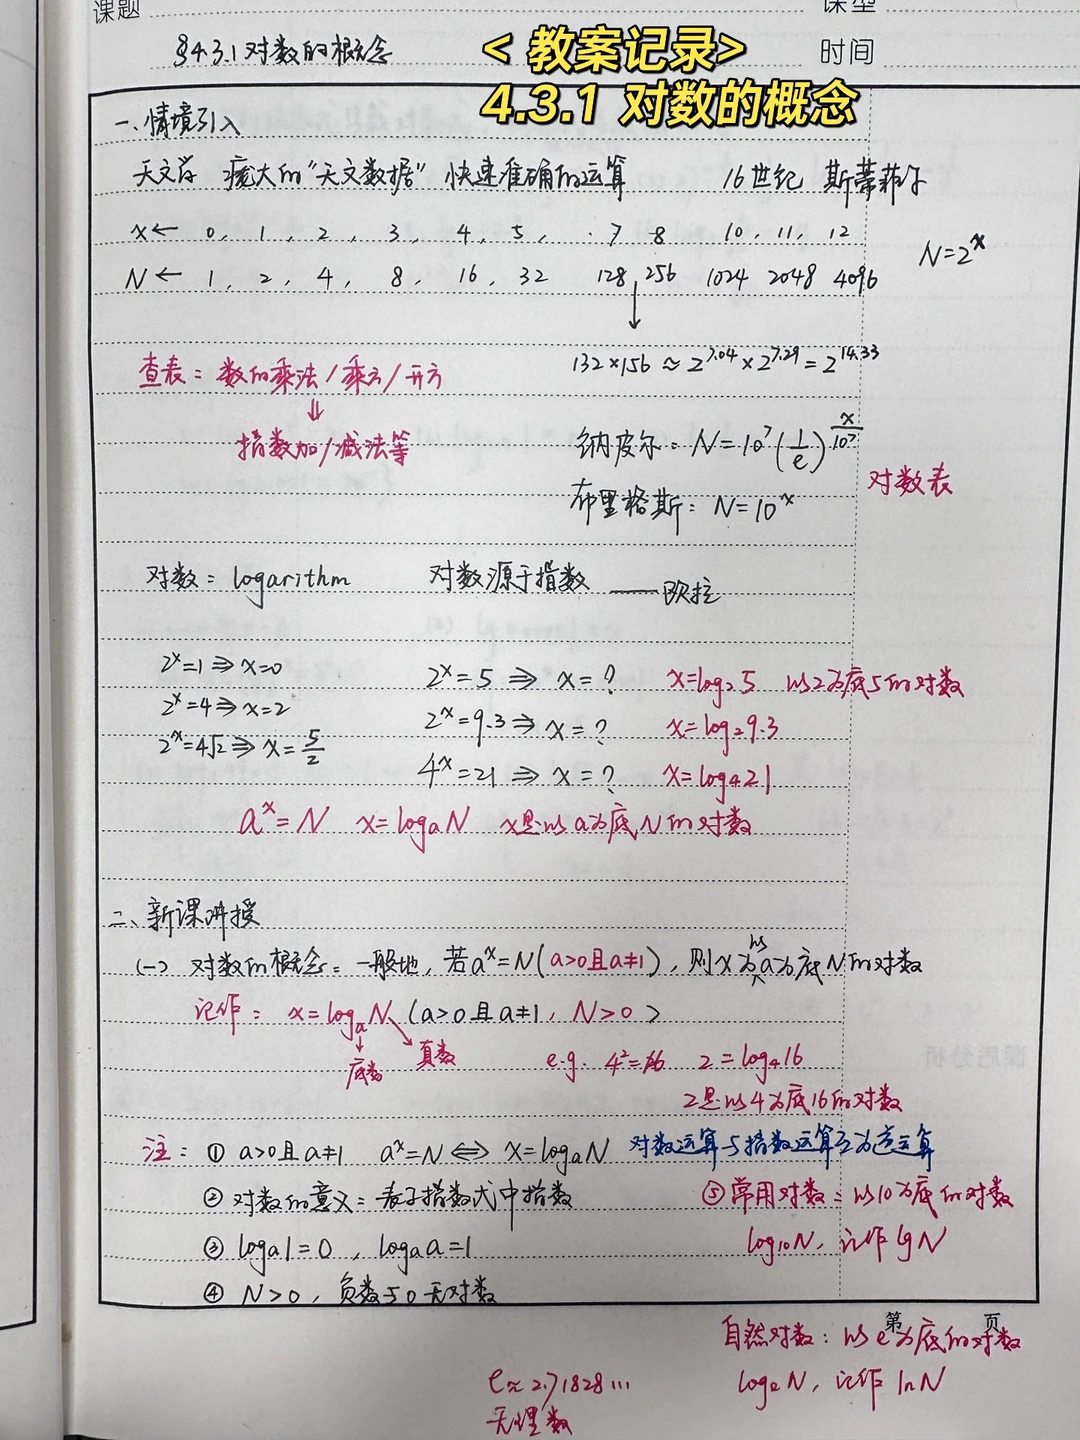 课题
课型
§4.3.1 对数的概念
时间
<教案记录>
4.3.1 对数的概念
一、情境引入
天文学 庞大的"天文数据" 快速准确的运算 16世纪 斯蒂菲尔
x← 0, 1, 2, 3, 4, 5, · 7 8 10, 11, 12
N← 1, 2, 4, 8, 16, 32 128, 256 1024 2048 4096
N=2^x
↓
132×156≈2^7.04×2^7.29=2^14.33
查表：数的乘法/乘方/开方
⇓
指数加/减法等
纳皮尔：N=10^7(1/e)^(x/10^7)
布里格斯：N=10^x
对数表
对数：logarithm 对数源于指数 ——欧拉
2^x=1⇒x=0
2^x=4⇒x=2
2^x=4√2⇒x=5/2
2^x=5⇒x=? x=log₂5 以2为底5的对数
2^x=9.3⇒x=? x=log₂9.3
4^x=21⇒x=? x=log₄21
a^x=N x=logₐN x是以a为底N的对数
二、新课讲授
(一) 对数的概念：一般地，若a^x=N(a>0且a≠1)，则x为以a为底N的对数
记作：x=logₐN (a>0且a≠1, N>0)
底数
真数
e.g. 4²=16 2=log₄16
2是以4为底16的对数
注：① a>0且a≠1 a^x=N⇔x=logₐN 对数运算与指数运算互为逆运算
② 对数的意义：表示指数式中指数
③ logₐ1=0, logₐa=1
④ N>0, 负数与0无对数
⑤常用对数：以10为底的对数
log₁₀N, 记作lgN
第 页
自然对数：以e为底的对数
logₑN, 记作lnN
e≈2.71828…
无理数